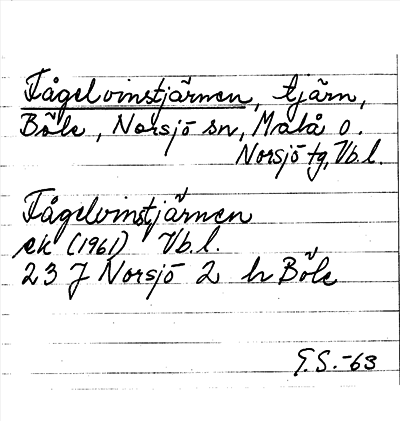 Fågelvinstjärnen, tjärn,
Böle, Norsjö sn, Malå o.
Norsjö tg, Vb.l.
Fågelvinstjärnen
ek (1961) Vb.l.
23 J Norsjö 2 h Böle
G.S.-63